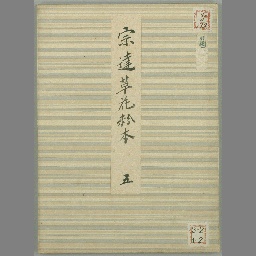 宗達草花粉本 五